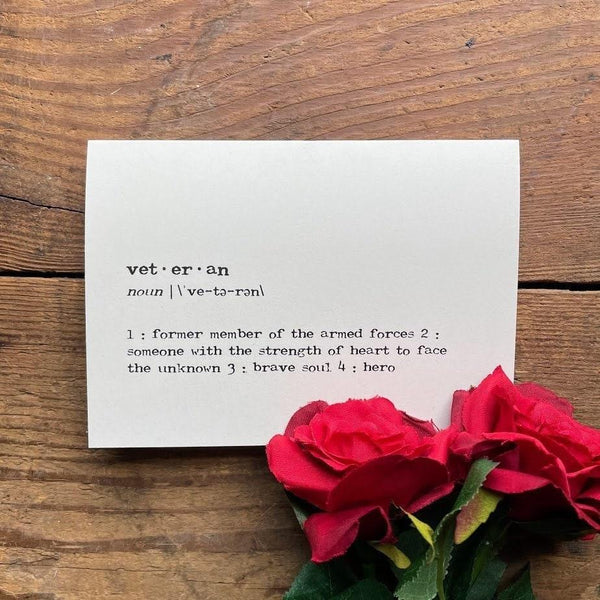 vet·er·an
noun | \ˈve-tə-rən\
1 : former member of the armed forces 2 :
someone with the strength of heart to face
the unknown 3 : brave soul 4 : hero